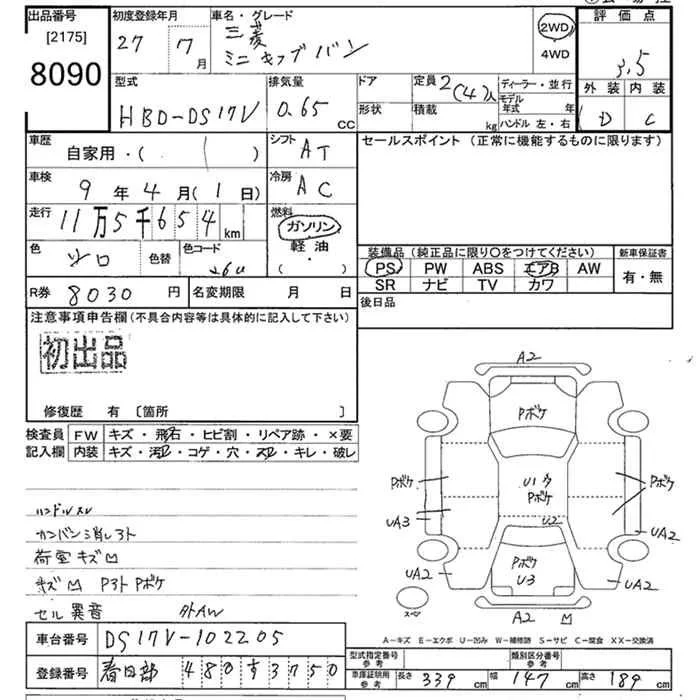 出品番号
[2175]
8090
初度登録年月
27 7月
車名・グレード
三菱
ミニキャブバン
2WD
4WD
評価点
3.5
外装 内装
D C
型式
HBD-DS17V
排気量
0.65 CC
ドア
形状
定員 2(4)人
積載 kg
ディーラー・並行
モデル年式 年
ハンドル 左・右
車歴
自家用・( )
シフト
AT
セールスポイント(正常に機能するものに限ります)
車検
9年4月(1日)
冷房
AC
走行
11万5千654km
燃料
ガソリン
軽油
(・)
色
シロ
色替
色コード
装備品(純正品に限り○をつけてください)
PS PW ABS エアB AW
SR ナビ TV カワ
新車保証書
有・無
R券 8030円
名変期限 月 日
後日品
注意事項申告欄(不具合内容等は具体的に記入して下さい)
初出品
修復歴 有 〔箇所 〕
検査員記入欄
FW キズ・飛石・ヒビ割・リペア跡・×要
内装 キズ・汚レ・コゲ・穴・スレ・キレ・破レ
ハンドルスレ
カンバン消しアト
荷室キズ凹
キズ凹 Pアト Pボケ
セル異音 外AW
A2
Pボケ
Pボケ
U1 タ
Pボケ
Pボケ
UA3
U2
UA2
Pボケ
U3
UA2
UA2
スペア
A2 凹
A-キズ E-エクボ U-凹み W-補修跡 S-サビ C-腐食 XX-交換済
車台番号 DS17V-102205
登録番号 春日部 480す3750
型式指定番号 参考
類別区分番号 参考
車庫証明用 参考
長さ 339 cm 幅 147 cm 高さ 189 cm